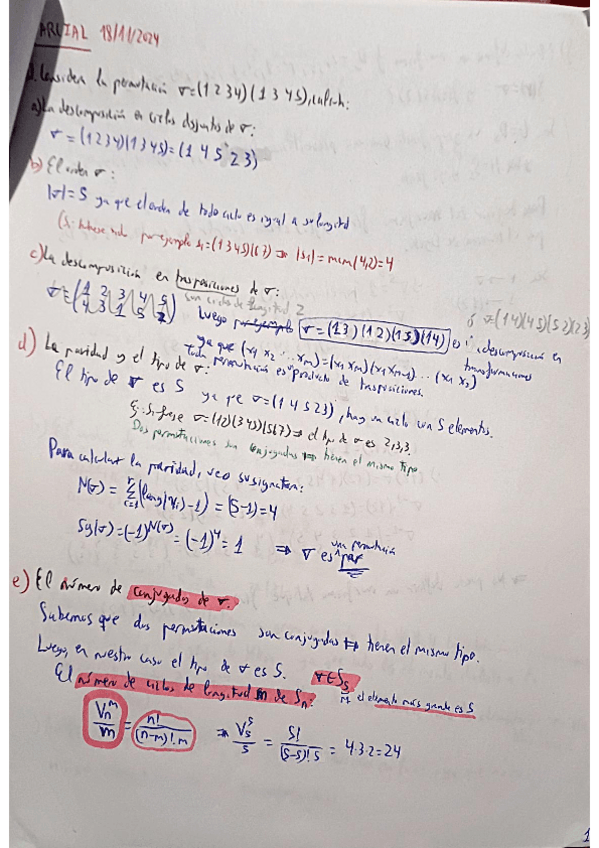 ARCIAL 18/11/2024
1. Considera la permutación σ=(1 2 3 4)(1 3 4 5), calcula:
a) La descomposición en ciclos disjuntos de σ:
σ=(1234)(1345)=(1 4 5 2 3)
b) El orden σ:
|σ|=5 ya que el orden de todo ciclo es igual a su longitud
(Si tuviese más por ejemplo s₁=(1345)(67) ⇒ |s₁|=mcm(4,2)=4
c) La descomposición en trasposiciones de σ:
son ciclos de longitud 2
σ=(1 2 3 4 5
4 3 1 5 2)
Luego por ejemplo σ=(13)(12)(15)(14) es la descomposición en
ó σ=(14)(45)(52)(23)
ya que (x₁ x₂ ... xₘ)=(x₁ xₘ)(x₁ xₘ₋₁)...(x₁ x₂)
Toda permutación es producto de trasposiciones.
d) La paridad y el tipo de σ:
El tipo de σ es 5 ya que σ=(1 4 5 2 3), hay un ciclo con 5 elementos.
Ej: Si fuese σ=(12)(345)(567) ⇒ el tipo de σ es 2,3,3
Dos permutaciones son conjugadas ⇔ tienen el mismo tipo
Para calcular la paridad, veo su signatura:
N(σ)=Σᵢ₌₁ʳ(long(γᵢ)-1)=(5-1)=4
Sg(σ)=(-1)^N(σ)=(-1)⁴=1 ⇒ σ es una permutación par
e) El número de conjugados de σ.
Sabemos que dos permutaciones son conjugadas ⇔ tienen el mismo tipo.
Luego, en nuestro caso el tipo de σ es 5. σ∈S₅
El número de ciclos de longitud m de Sₙ: el elemento más grande es 5
Vₙᵐ/m = n!/((n-m)!·m) ⇒ V₅⁵/5 = 5!/((5-5)!·5) = 4·3·2=24
1